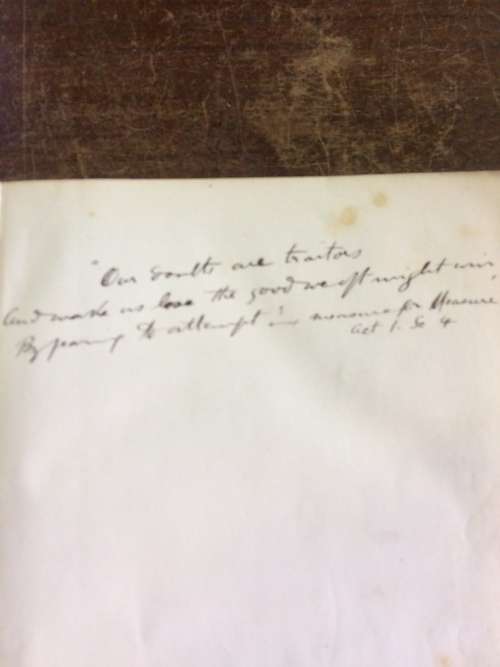 "Our doubts are traitors
And make us lose the good we oft might win
By fearing to attempt". Measure for Measure
Act 1. Sc 4